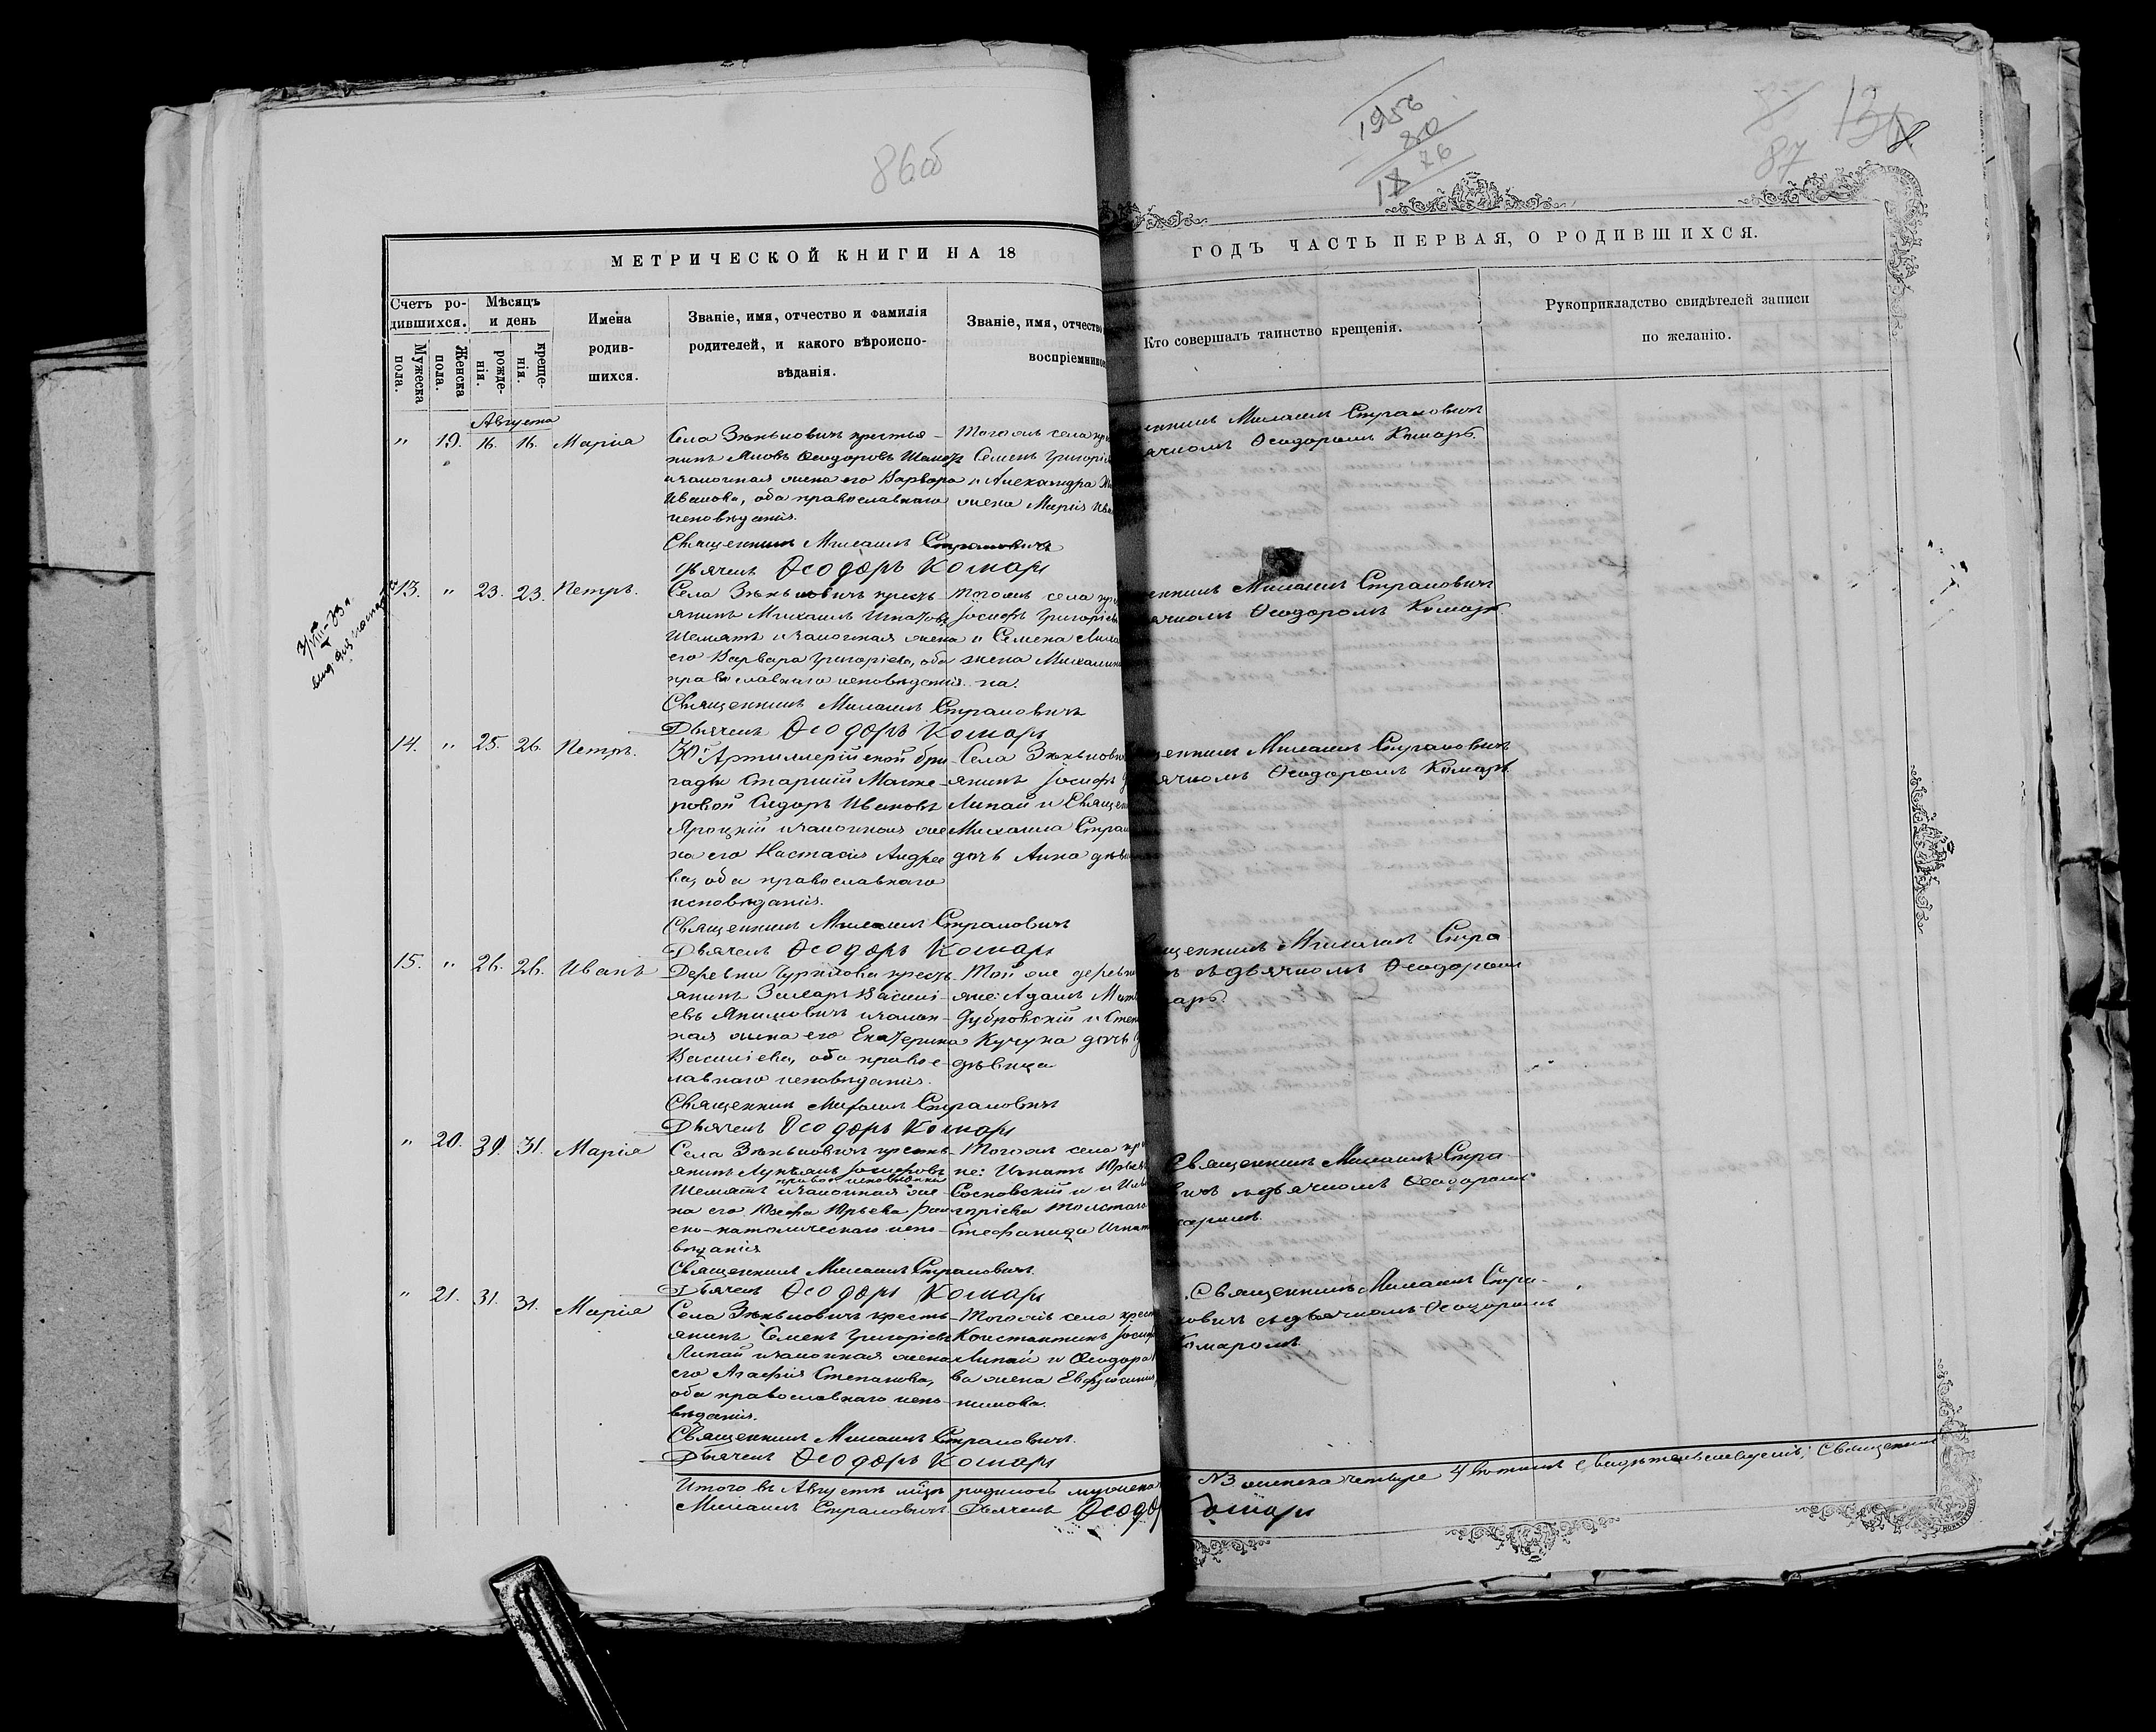 86об
1956
80
1876
87
МЕТРИЧЕСКОЙ КНИГИ НА 18
ГОДЪ ЧАСТЬ ПЕРВАЯ, О РОДИВШИХСЯ.
Счетъ ро-
дившихся.
Мужеска пола.
Женска пола.
Мѣсяцъ
и день
рожде-
нія.
креще-
нія.
Имена
родив-
шихся.
Званіе, имя, отчество и фамилія
родителей, и какого вѣроиспо-
вѣданія.
Званіе, имя, отчество
воспріемников
Кто совершалъ таинство крещенія.
Рукоприкладство свидѣтелей записи
по желанію.
Августа
" 19. 16. 16. Марія
Села Зѣньковичъ крестья-
нинъ Яковъ Ѳеодоровъ
и законная жена его Варвара
Иванова, оба православнаго
исповѣданія.
Священникъ Михаилъ Страковичъ
Дьячекъ Ѳеодоръ Комаръ
Тогоже села кр
Семенъ Григорі
и Александра
жена Марія Ив
енникъ Михаилъ Страковичъ
ячкомъ Ѳеодоромъ Комаръ.
13. " 23. 23. Петръ.
Села Зѣньковичъ крест-
янинъ Михаилъ Игнатовъ
Шеметъ и законная жена
его Варвара Григоріева, оба
православнаго исповѣданія.
Священникъ Михаилъ Страковичъ
Дьячекъ Ѳеодоръ Комаръ
Тогоже села кр
Іосифъ Григоріев
и Семена
жена Михалина
на.
енникъ Михаилъ Страковичъ
ячкомъ Ѳеодоромъ Комаръ.
14. " 25. 26. Петръ.
30й Артиллерійской бри-
гады Старшій
Сидоръ Ивановъ
Яроцкій и законная же
на его Настасія Андрее
ва, оба православнаго
исповѣданія.
Священникъ Михаилъ Страковичъ
Дьячекъ Ѳеодоръ Комаръ
Села Зѣньковичъ
янинъ Іосифъ
Липай и Священ
Михаила Страк
дочь Анна дѣви
щенникъ Михаилъ Страковичъ
ячкомъ Ѳеодоромъ Комаръ.
15. " 26. 26. Иванъ
Деревни крест-
янинъ Захаръ Василі-
евъ Якимовичъ и закон-
ная жена его Екатерина
Василіева, оба правос-
лавнаго исповѣданія.
Священникъ Михаилъ Страковичъ
Дьячекъ Ѳеодоръ Комаръ
Той же деревни
яне: Адамъ Мат
Дубровскій и Сте
Кучука дочь
дѣвица
щенникъ Михаилъ Стра
ъ съ дьячкомъ Ѳеодором
аръ.
" 20. 29. 31. Марія
Села Зѣньковичъ кресть-
янинъ Лукьянъ Іосифовъ
правос. исповѣданія
Шеметъ и законная же-
на его Юзефа Юрьева рим
ско-католическаго испо-
вѣданія
Священникъ Михаилъ Страковичъ.
Дьячекъ Ѳеодоръ Комаръ
Тогоже села кр
не: Игнатъ Юрьев
Сосновскій и
горіева
Стефанида Игнат
Священникъ Михаилъ Стра-
вичъ съ дьячкомъ Ѳеодоромъ
аромъ.
" 21. 31. 31. Марія
Села Зѣньковичъ кресть-
янинъ Семенъ Григорьевъ
Липай и законная жена
его Агафія Степанова,
оба православнаго испо-
вѣданія.
Священникъ Михаилъ Страковичъ.
Дьячекъ Ѳеодоръ Комаръ
Тогоже села крест
Константинъ Іосиф
Липай и Ѳеодора
ва жена Евфросинія
Священникъ Михаилъ Стра-
ковичъ съ дьячкомъ Ѳеодоромъ
Комаромъ.
Итого въ Августѣ мѣс. родилось мужеска
3 женска четыре 4 свидѣтельствуемъ: Священникъ
Михаилъ Страковичъ Дьячекъ Ѳеодо
Комаръ